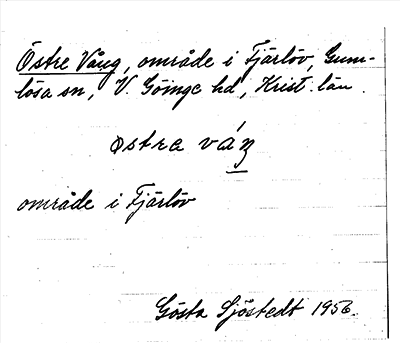 Östre Vång, område i Fjärlöv, Gum-
lösa sn, V. Göinge hd, Krist. län.
østra váŋ
område i Fjärlöv
Gösta Sjöstedt 1956.